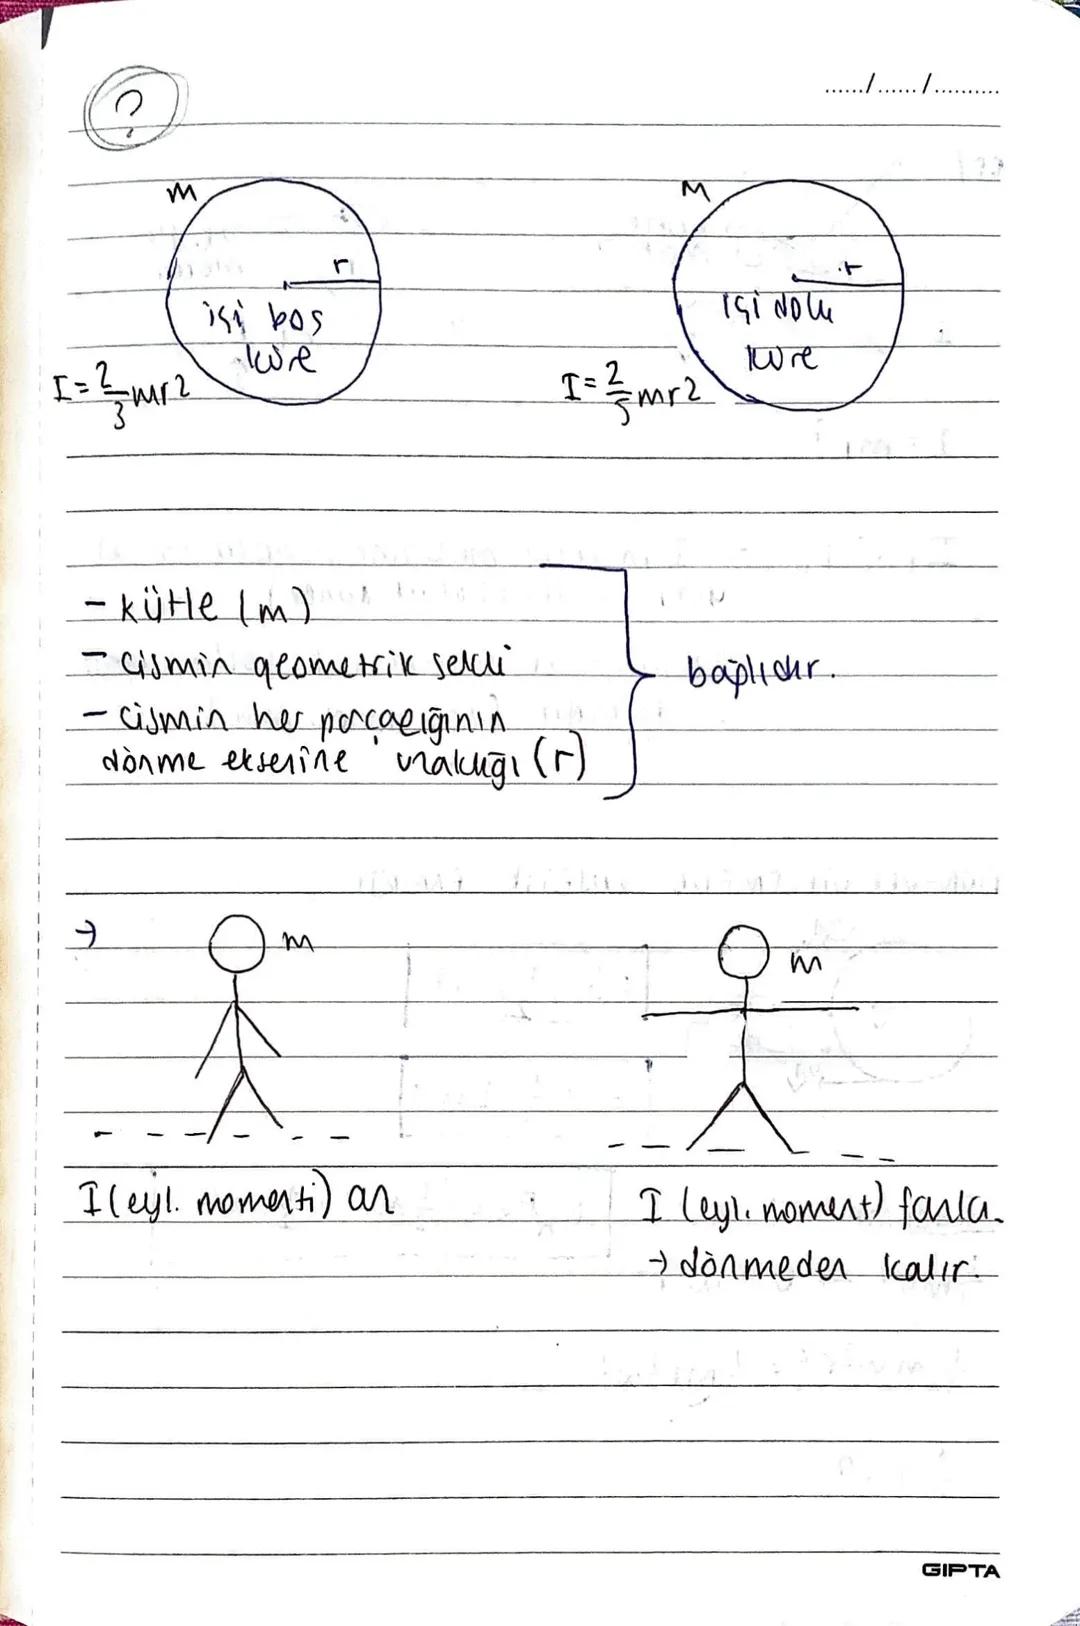 ?
....../....../..........
m
m
r
r
içi boş
küre
içi dolu
küre
I=2/3 mr2
I=2/5 mr2
- kütle (m)
- cismin geometrik şekli
- cismin her parçacığının
dönme eksenine uzaklığı (r)
bağlıdır.
→
m
m
I (eyl. momenti) az
I (eyl. moment) fazla.
→ dönmeden kalır.
GIPTA